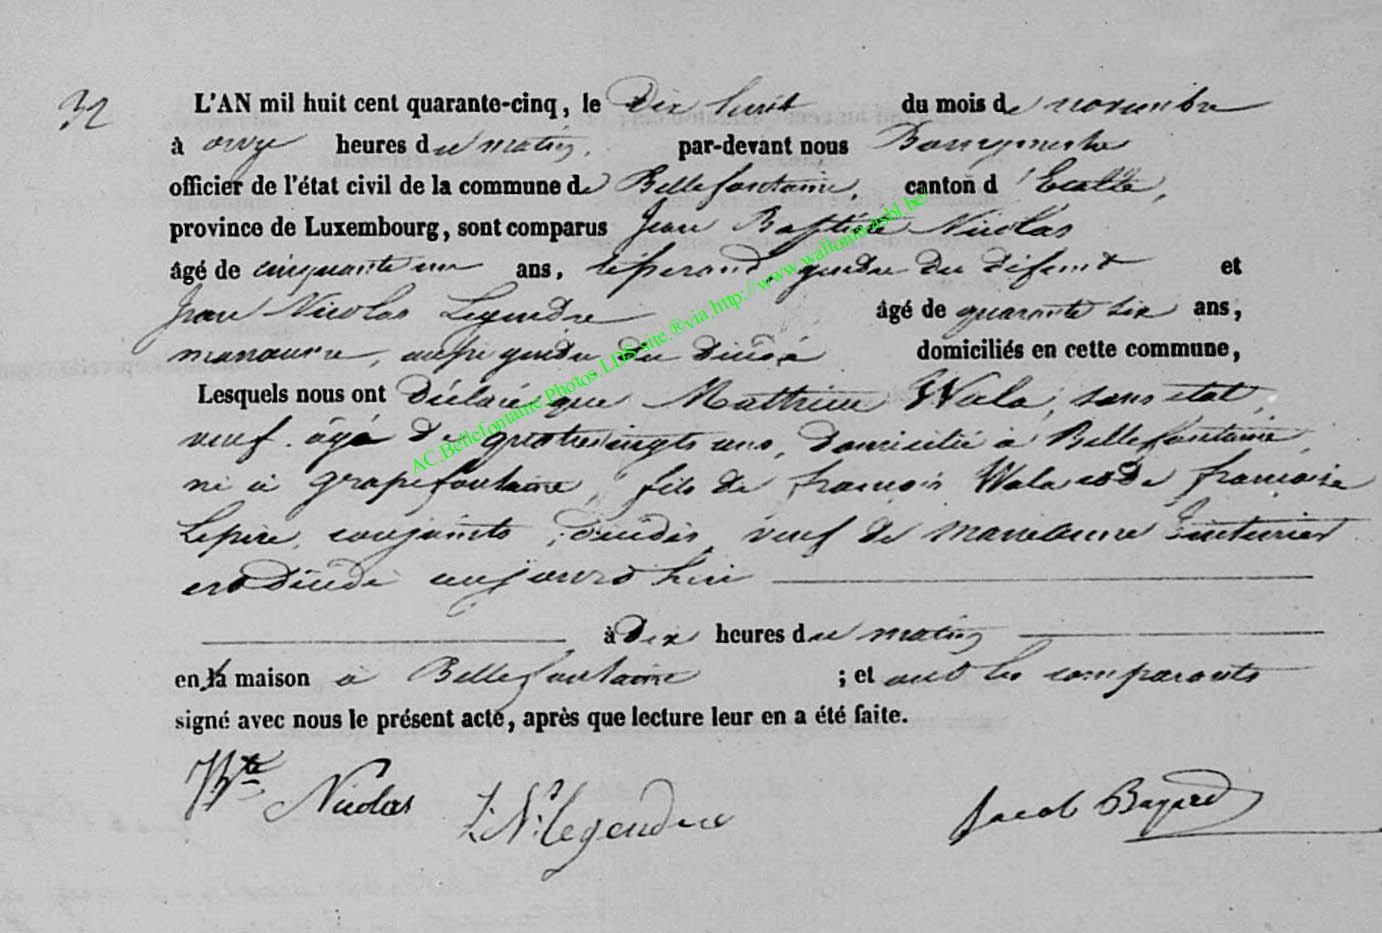 32
L'AN mil huit cent quarante-cinq, le dix huit du mois de novembre
à onze heures du matin, par-devant nous Bourgmestre
officier de l'état civil de la commune de Bellefontaine, canton d'Etalle,
province de Luxembourg, sont comparus Jean Baptiste Nicolas
âgé de cinquante un ans, gendre du défunt et
Jean Nicolas Legendre âgé de quarante six ans,
manœuvre, aussi gendre du décédé domiciliés en cette commune,
Lesquels nous ont déclaré que Mathieu Wala, sans etat,
veuf âgé de quatre vingts ans, domicilié à Bellefontaine,
né à grapefontaine, fils de francois Wala et de francoise
Lepire, conjoints, décédés, veuf de marieanne
est décédé aujourd'hui
à dix heures du matin
en la maison à Bellefontaine ; et ont les comparants
signé avec nous le présent acte, après que lecture leur en a été faite.
Nicolas J. N. Legendre Jacob Bayard
AC.Bellefontaine.Photos.LDS-site.®via.http://www.wallonia-asbl.be/